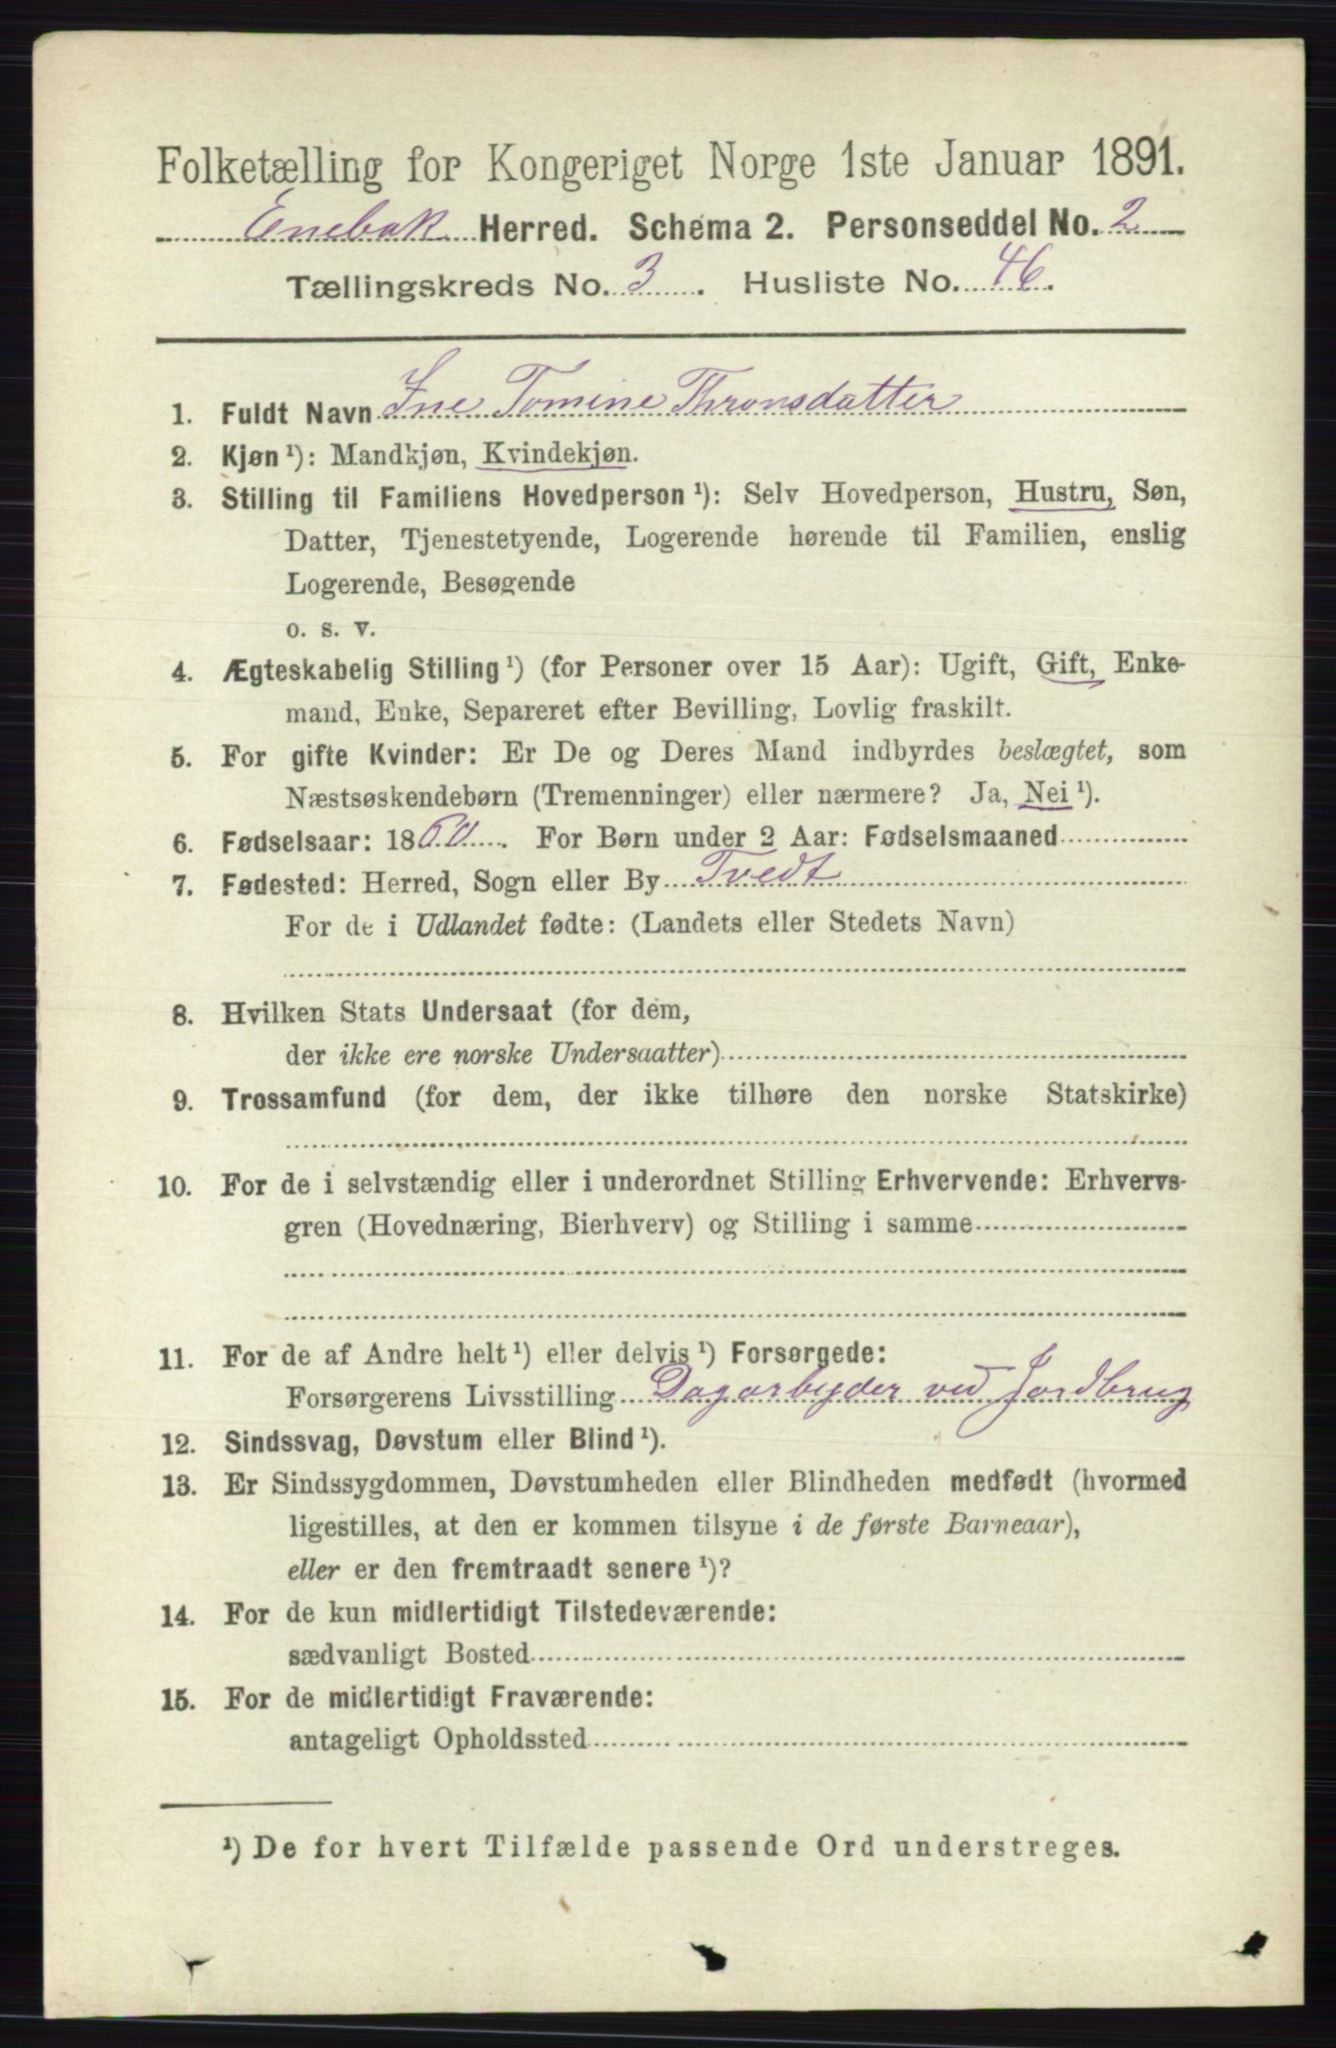 Folketælling for Kongeriget Norge 1ste Januar 1891.
Enebak Herred. Schema 2. Personseddel No. 2
Tællingskreds No. 3. Husliste No. 46.
1. Fuldt Navn Ine Tomine Thronsdatter
2. Kjøn ¹): Mandkjøn, Kvindekjøn.
3. Stilling til Familiens Hovedperson ¹): Selv Hovedperson, Hustru, Søn,
Datter, Tjenestetyende, Logerende hørende til Familien, enslig
Logerende, Besøgende
o. s. v.
4. Ægteskabelig Stilling ¹) (for Personer over 15 Aar): Ugift, Gift, Enke-
mand, Enke, Separeret efter Bevilling, Lovlig fraskilt.
5. For gifte Kvinder: Er De og Deres Mand indbyrdes beslægtet, som
Næstsøskendebørn (Tremenninger) eller nærmere? Ja, Nei ¹).
6. Fødselsaar: 1860. For Børn under 2 Aar: Fødselsmaaned
7. Fødested: Herred, Sogn eller By Tvedt
For de i Udlandet fødte: (Landets eller Stedets Navn)
8. Hvilken Stats Undersaat (for dem,
der ikke ere norske Undersaatter)
9. Trossamfund (for dem, der ikke tilhøre den norske Statskirke)
10. For de i selvstændig eller i underordnet Stilling Erhvervende: Erhvervs-
gren (Hovednæring, Bierhverv) og Stilling i samme
11. For de af Andre helt ¹) eller delvis ¹) Forsørgede:
Forsørgerens Livsstilling Dagarbeyder ved Jordbrug
12. Sindssvag, Døvstum eller Blind ¹).
13. Er Sindssygdommen, Døvstumheden eller Blindheden medfødt (hvormed
ligestilles, at den er kommen tilsyne i de første Barneaar),
eller er den fremtraadt senere ¹)?
14. For de kun midlertidigt Tilstedeværende:
sædvanligt Bosted
15. For de midlertidigt Fraværende:
antageligt Opholdssted
¹) De for hvert Tilfælde passende Ord understreges.